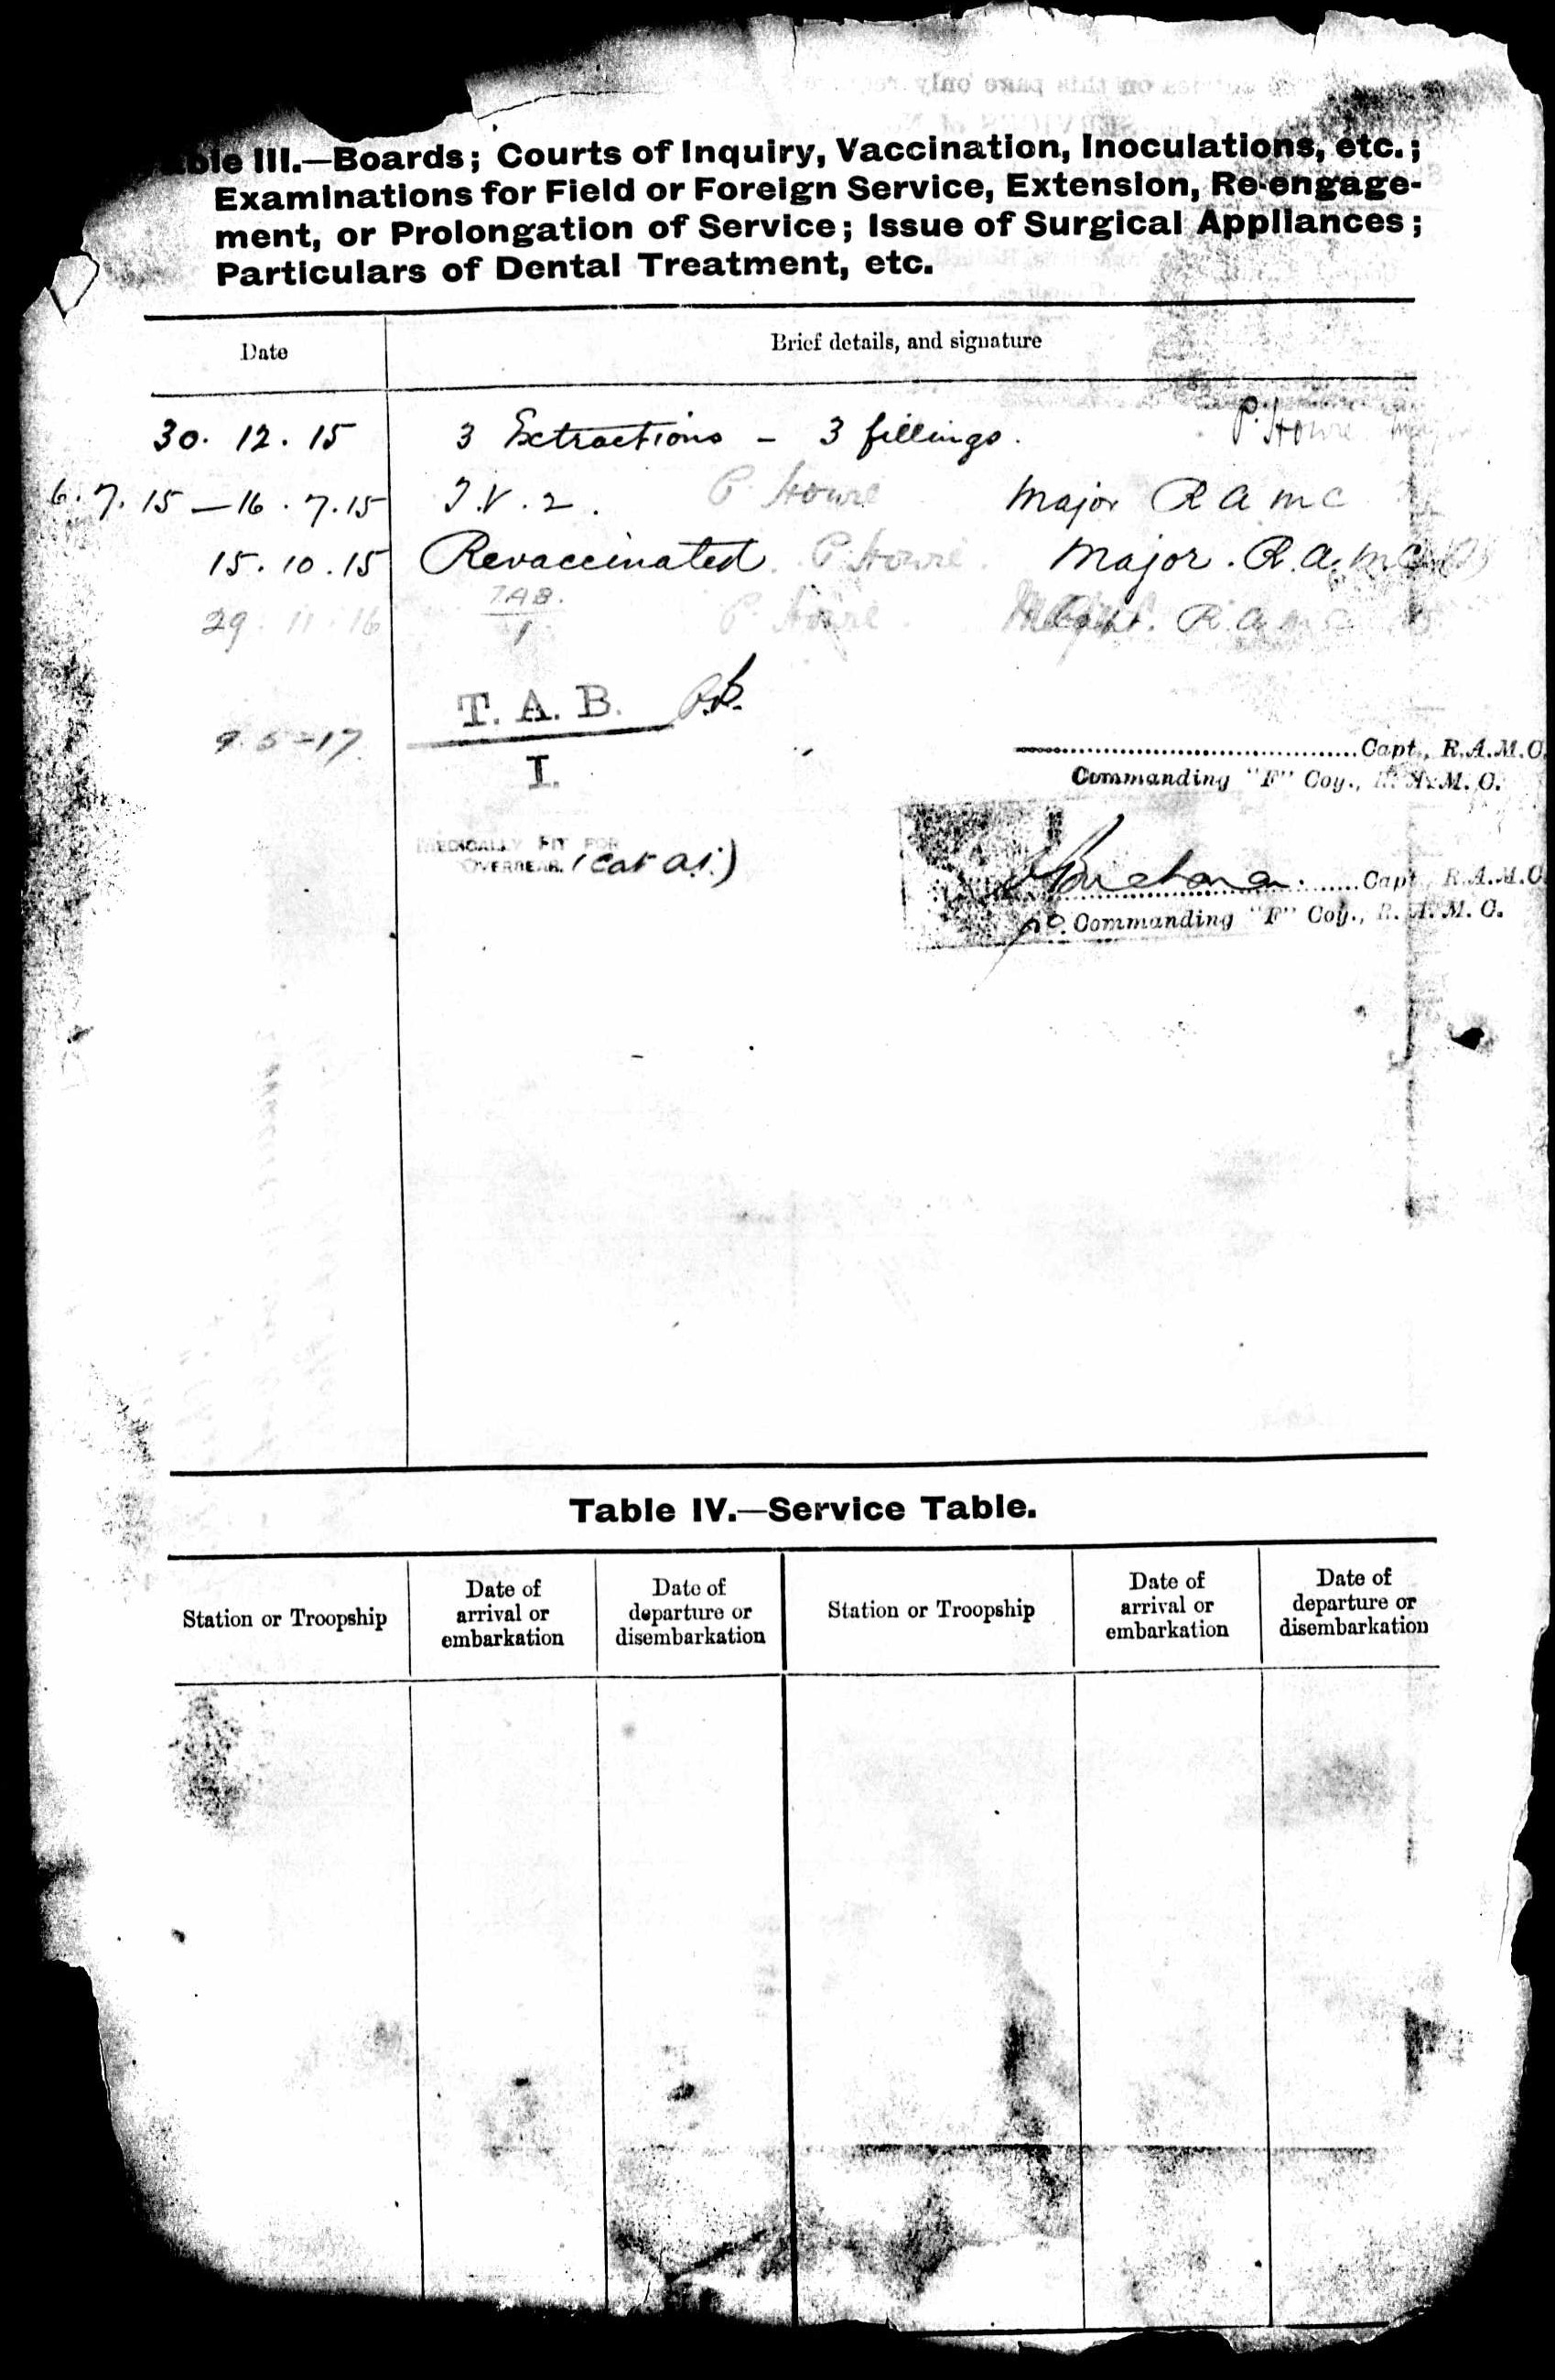 III.—Boards; Courts of Inquiry, Vaccination, Inoculations, etc.;
Examinations for Field or Foreign Service, Extension, Re-engage-
ment, or Prolongation of Service; Issue of Surgical Appliances;
Particulars of Dental Treatment, etc.
Date
Brief details, and signature
30. 12. 15 3 Extractions – 3 fillings. P. Howre
6.7.15 – 16.7.15 I.V.2. P. Howre Major R A M C
15.10.15 Revaccinated. P. Howre. Major. R.A.M.C.
29.11.16 TAB. 1 P. Howre. Capt. R.A.M.C.
9.5–17 T. A. B.
I.
Capt., R.A.M.C.
Commanding "F" Coy., R.A.M.C.
MEDICALLY FIT FOR
OVERSEAS. (Cat A.1.)
Capt, R.A.M.C.
Commanding "F" Coy., R.A.M.C.
Table IV.—Service Table.
Station or Troopship
Date of
arrival or
embarkation
Date of
departure or
disembarkation
Station or Troopship
Date of
arrival or
embarkation
Date of
departure or
disembarkation